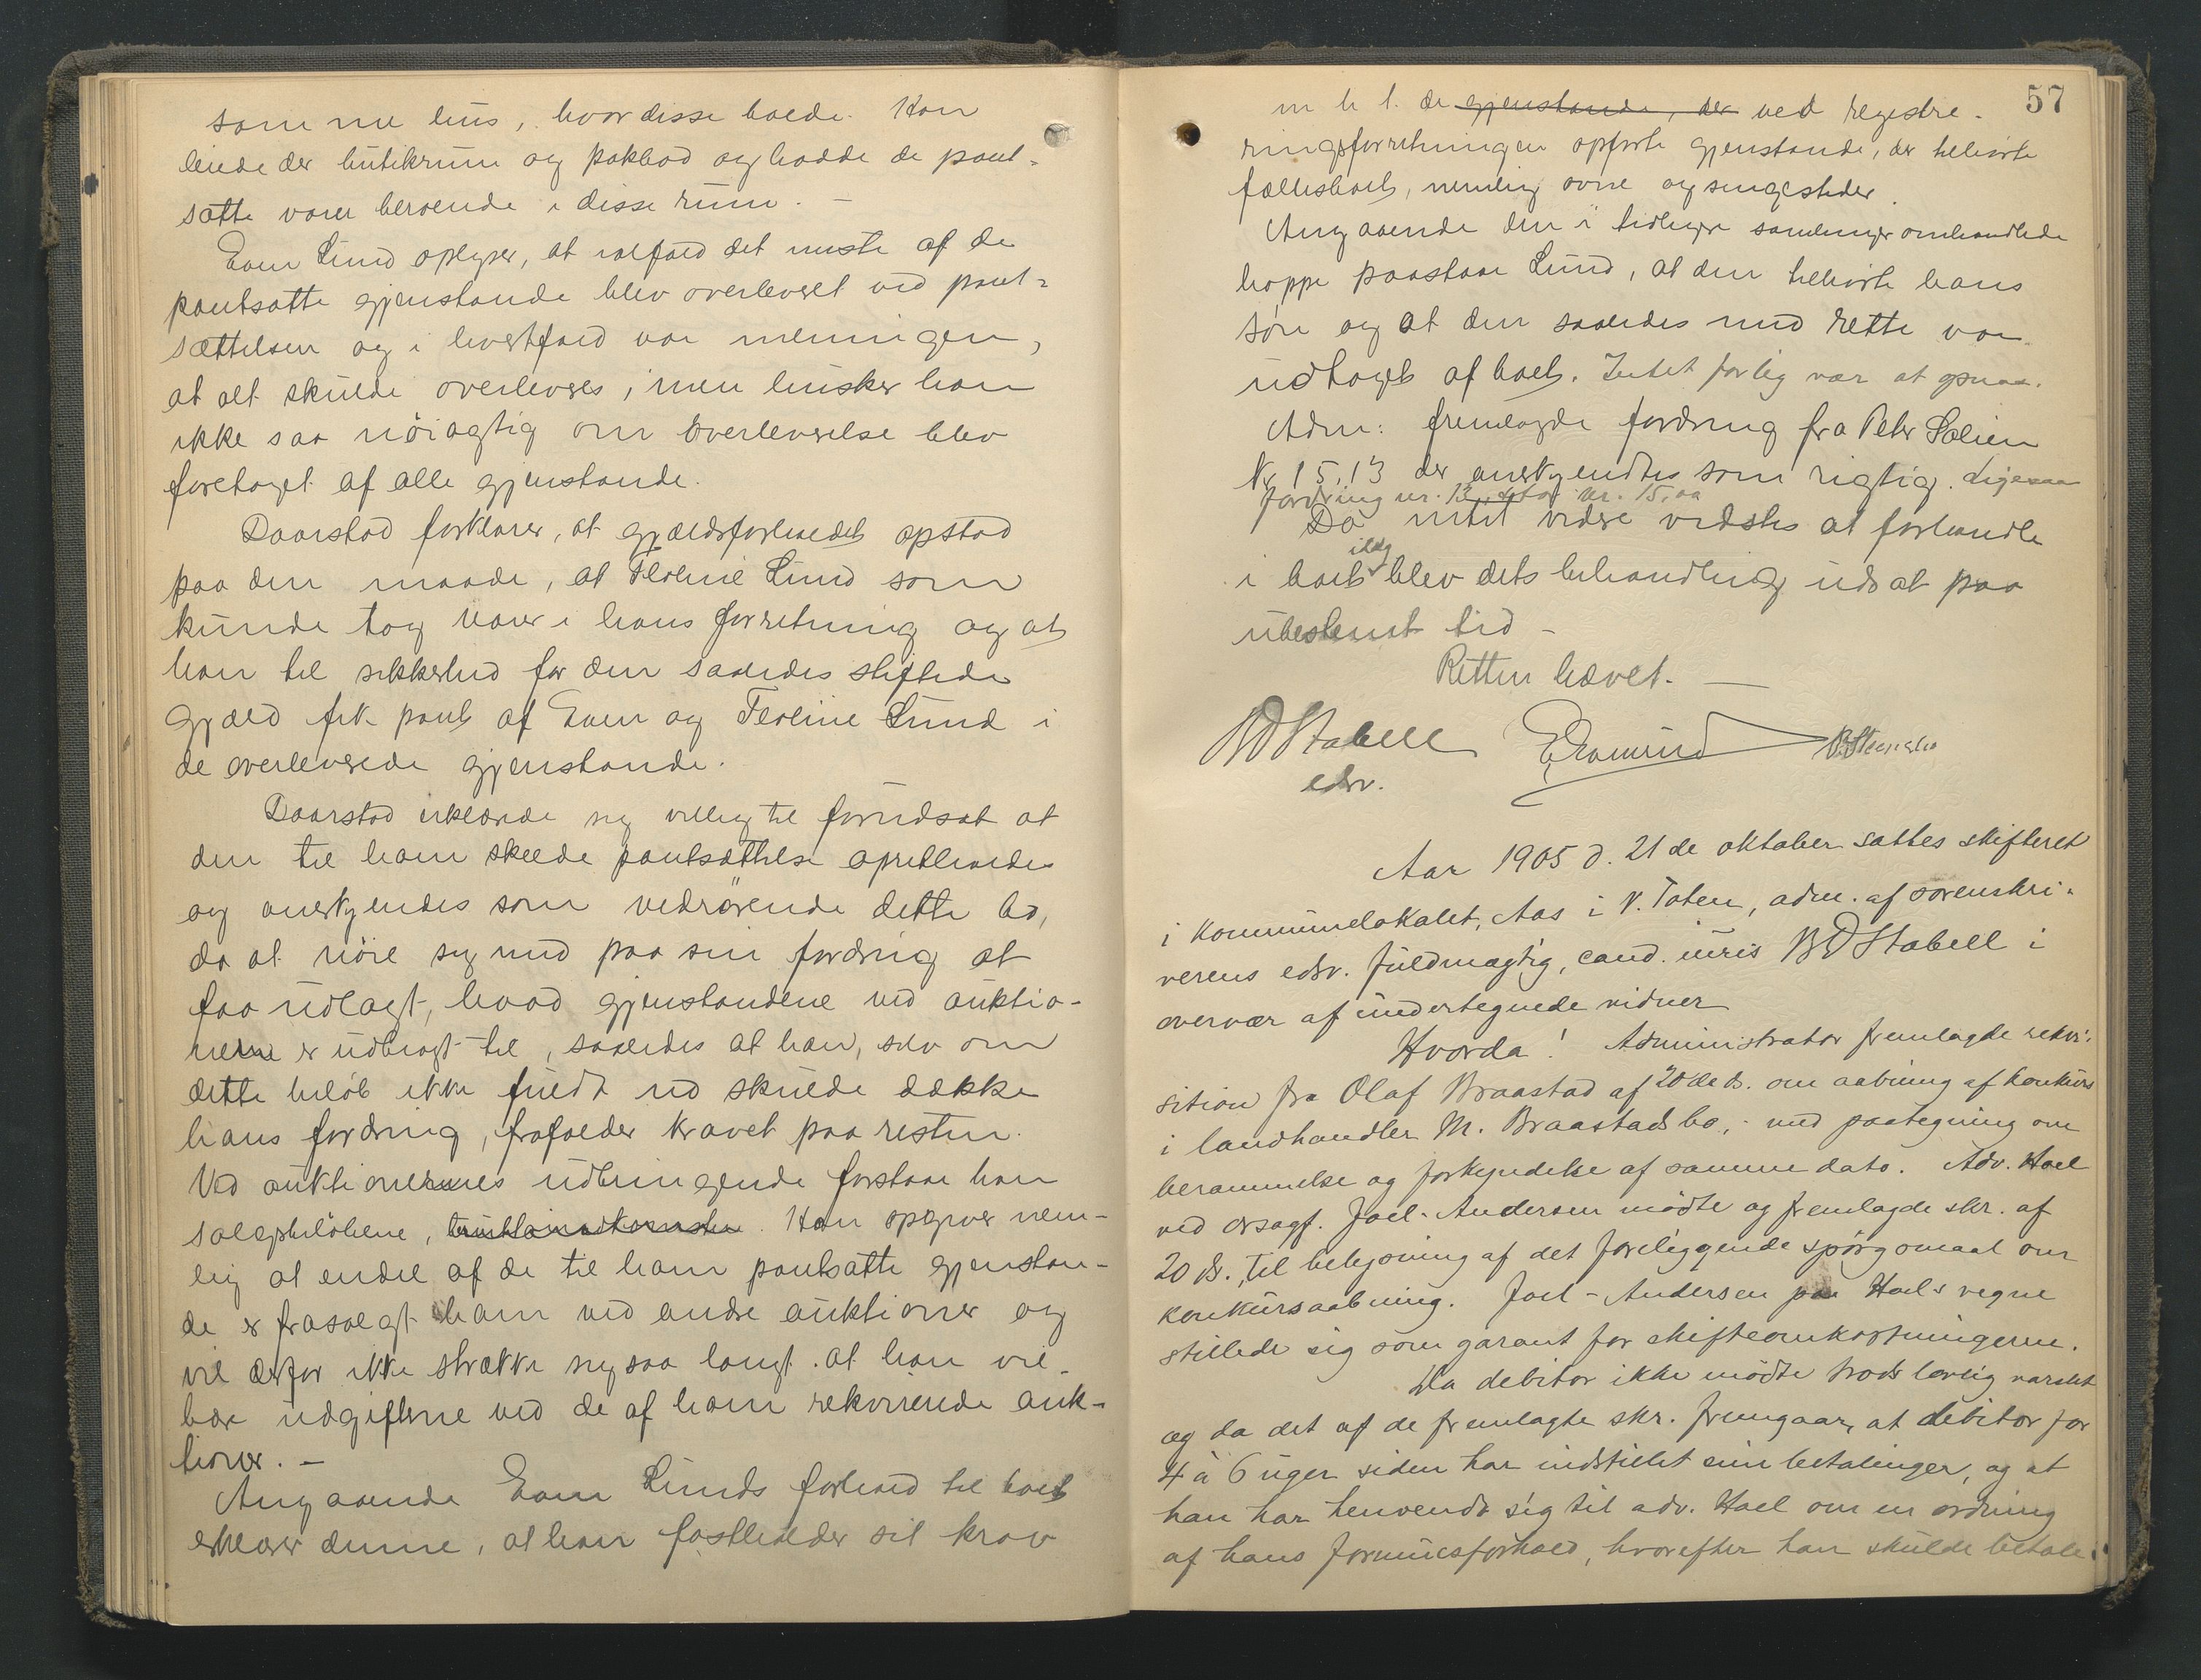 samme hus, hvor disse boede. Han
leiede der butikrum og pakbod og havde de pant-
satte varer beroende i disse rum. –
Even Lund oplyser, at ialfald det meste af de
pantsatte gjenstande blev overleveret ved pant-
sættelsen og i hvertfald var meningen,
at alt skulde overleveres, men husker han
ikke saa nöiagtig om overleverelse blev
foretaget af alle gjenstande.
Daarstad forklarer, at gjældsforholdet opstod
paa den maade, at Teoline Lund som
kunde tog varer i hans forretning og at
han til sikkerhed for den saaledes stiftede
gjæld fik pant af Even og Teoline Lund i
de overleverede gjenstande.
Daarstad erklærede sig villig til forudsat at
den til ham skede pantsættelse opretholdes
og anerkjendes som vedrörende dette bo,
da at nöie sig med paa sin fordring at
faa udlagt, hvad gjenstandene ved auktio-
nerne er udbragt til, saaledes at han, selv om
dette belöb ikke fuldt ud skulde dække
hans fordring, frafalder kravet paa resten.
Ved auktionernes udbringende forstaar han
salgsbelöbene, . Han opgiver nem-
lig at endel af de til ham pantsatte gjenstan-
de er frasolgt ham ved andre auktioner og
vil derfor ikke strække sig saa langt at han vil
bære udgifterne ved de af ham rekvirerede auk-
tioner. –
Angaaende Even Lunds forhold til boet
erklærer denne, at han fastholder sit krav
57
m h t. de gjenstande, der ved registre-
ringsforretningen opförte gjenstande, der tilhörte
fællesboet, nemlig ovne og sengesteder.
Angaaende den i tidligere samlinger omhandlede
hoppe paastaar Lund, at den tilhörte hans
sön og at den saaledes med rette var
udtaget af boet. Intet forlig var at opnaa.
Adm: fremlagde fordring fra Peter
Kr 15,13 der anerkjendtes som rigtig. Ligesaa
fordring nr. 13, kr. 15,00
Da intet videre vidstes at forhandle
idag
i boet blev dets behandling udsat paa
ubestemt tid –
Retten hævet. –
BDStabell
edsv.
Aar 1905 d. 21de oktober sattes skifteret
i kommunelokalet, Aas i V. Toten, adm. af sorenskri-
verens edsv. fuldmægtig, cand. iuris BDStabell i
overvær af undertegnede vidner
Hvorda! Administrator fremlagde rekvi-
sition fra Olaf Braastad af 20de ds. om aabning af konkurs
i landhandler M. Braastads bo, med paategning om
berammelse og forkyndelse af samme dato. Adv. Hoel
ved orsagf. Joel-Andersen mödte og fremlagde skr. af
20 ds. til belysning af det foreliggende spörgsmaal om
konkursaabning. Joel-Andersen paa Hoels vegne
stillede sig som garant for skifteomkostningerne.
Da debitor ikke mödte trods lovlig varslet
og da det af de fremlagte skr. fremgaar, at debitor for
4 à 6 uger siden har indstillet sine betalinger, og at
han har henvendt sig til adv. Hoel om en ordning
af hans formuesforhold, hvorefter han skulde betale